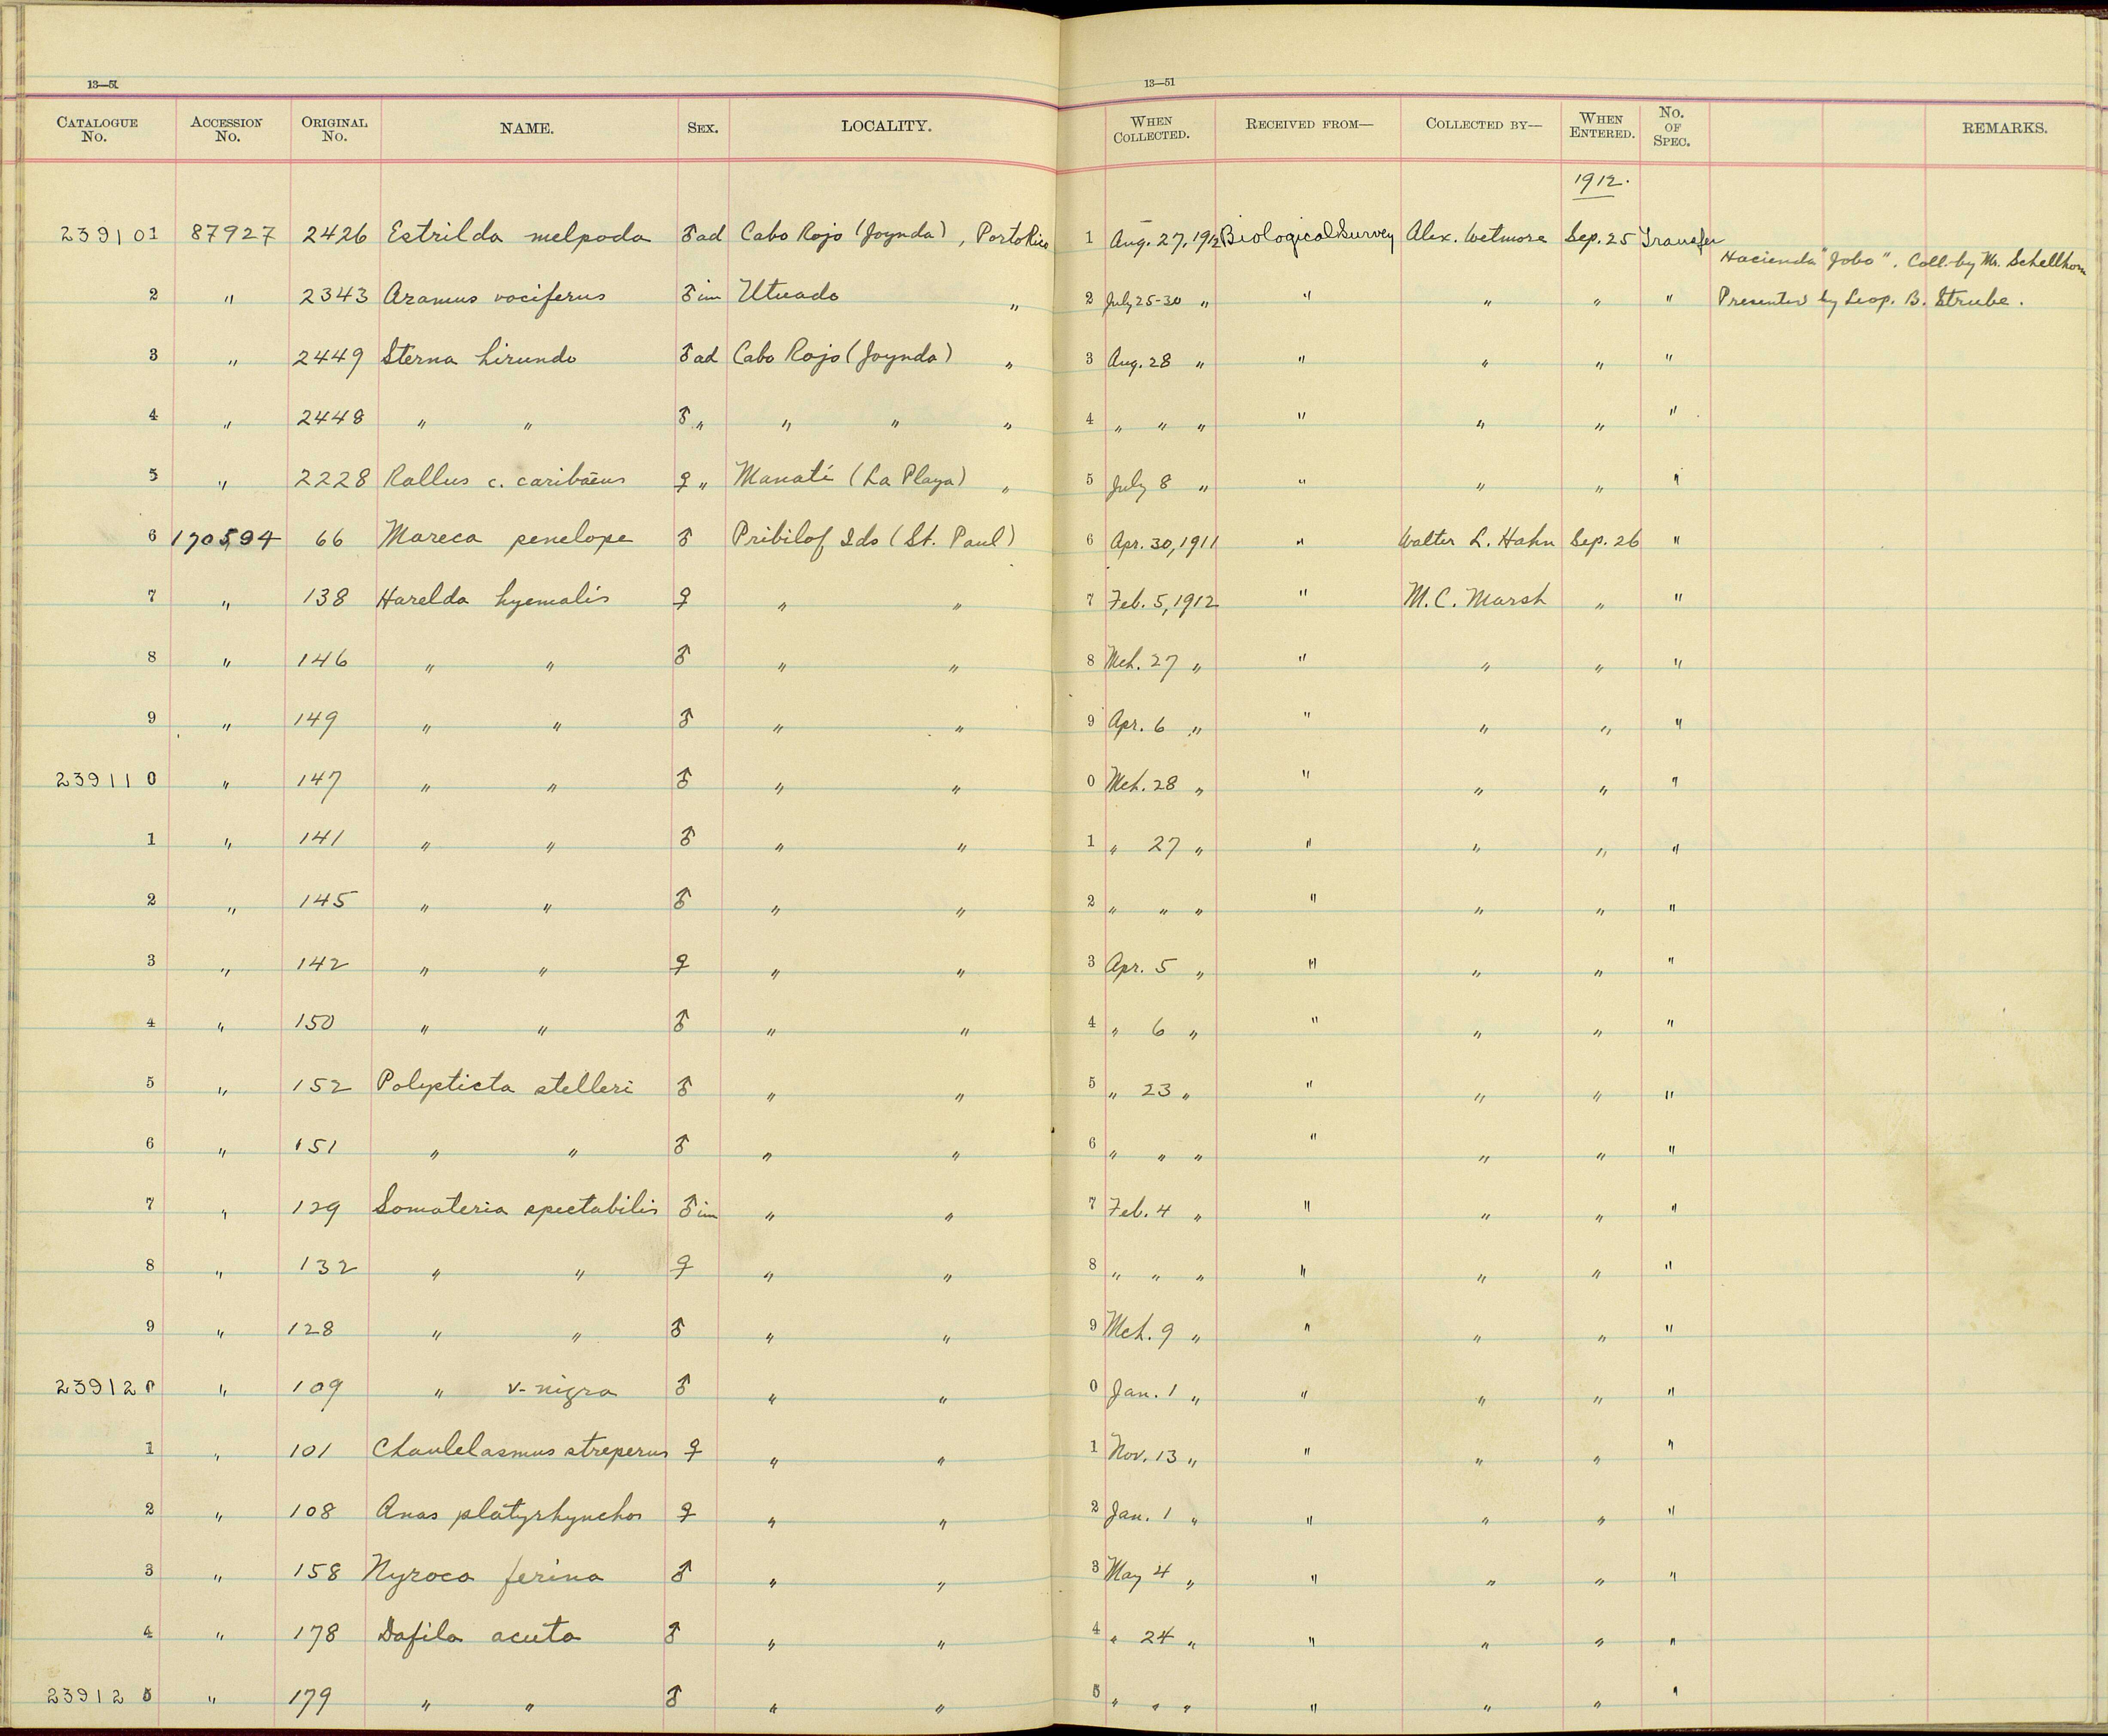 13—51 13—51
CATALOGUE No. ACCESSION No. ORIGINAL No. NAME. SEX. LOCALITY. WHEN COLLECTED. RECEIVED FROM— COLLECTED BY— WHEN ENTERED. No. OF SPEC. REMARKS.
1912.
239101 87927 2426 Estrilda melpoda ♂ad Cabo Rojo (Joynda), Porto Rico 1 Aug. 27, 1912 Biological Survey Alex. Wetmore Sep. 25 Transfer
Hacienda "Jobo". Coll. by Mr. Schellhorn
2 " 2343 Aramus vociferus ♂im Utuado " 2 July 25-30 " " " " " Presented by Leop. B. Strube.
3 " 2449 Sterna hirundo ♂ad Cabo Rojo (Joynda) " 3 Aug. 28 " " " " "
4 " 2448 " " ♂ " " " " 4 " " " " " " "
5 " 2228 Rallus c. caribaeus ♀ " Manatí (La Playa) " 5 July 8 " " " " "
6 170594 66 Mareca penelope ♂ Pribilof Ids (St. Paul) 6 Apr. 30, 1911 " Walter L. Hahn Sep. 26 "
7 " 138 Harelda hyemalis ♀ " " 7 Feb. 5, 1912 " M. C. Marsh " "
8 " 146 " " ♂ " " 8 Mch. 27 " " " " "
9 " 149 " " ♂ " " 9 Apr. 6 " " " " "
239110 " 147 " " ♂ " " 0 Mch. 28 " " " " "
1 " 141 " " ♂ " " 1 " 27 " " " " "
2 " 145 " " ♂ " " 2 " " " " " " "
3 " 142 " " ♀ " " 3 Apr. 5 " " " " "
4 " 150 " " ♂ " " 4 " 6 " " " " "
5 " 152 Polysticta stelleri ♂ " " 5 " 23 " " " " "
6 " 151 " " ♂ " " 6 " " " " " " "
7 " 129 Somateria spectabilis ♂im " " 7 Feb. 4 " " " " "
8 " 132 " " ♀ " " 8 " " " " " " "
9 " 128 " " ♂ " " 9 Mch. 9 " " " " "
239120 " 109 " v-nigra ♂ " " 0 Jan. 1 " " " " "
1 " 101 Chaulelasmus streperus ♀ " " 1 Nov. 13 " " " " "
2 " 108 Anas platyrhynchos ♀ " " 2 Jan. 1 " " " " "
3 " 158 Nyroca ferina ♂ " " 3 May 4 " " " " "
4 " 178 Dafila acuta ♂ " " 4 " 24 " " " " "
239125 " 179 " " ♂ " " 5 " " " " " " "